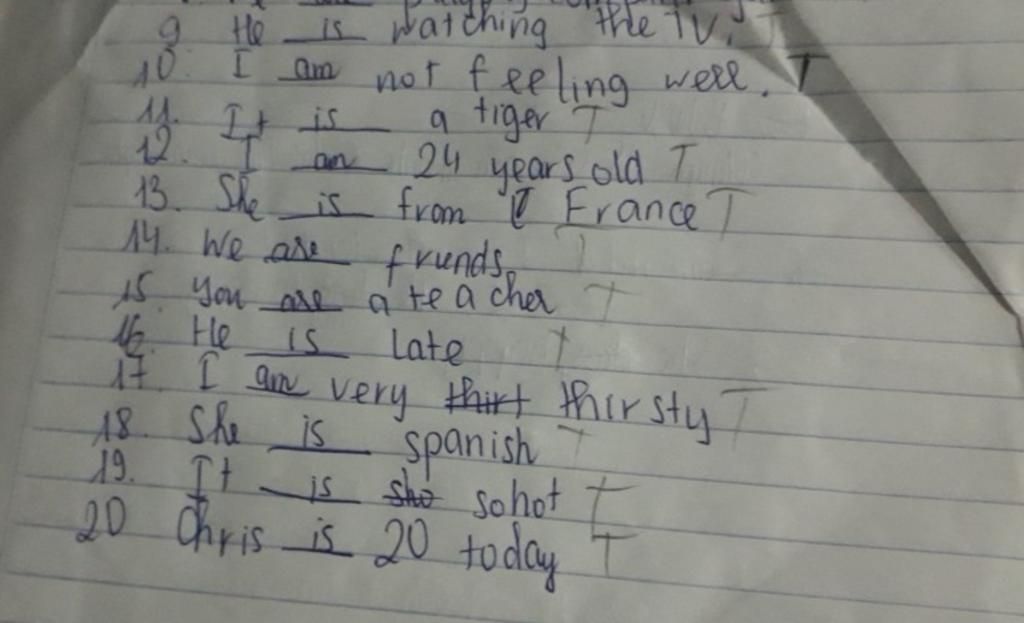 9 He is watching the TV. T
10. I am not feeling well. T
11. It is a tiger T
12. I am 24 years old T
13. She is from France T
14. We are frunds. T
15. you are a teacher T
16. He is late T
17. I am very thirt thirsty T
18. She is spanish T
19. It is sho so hot T
20 Chris is 20 today T